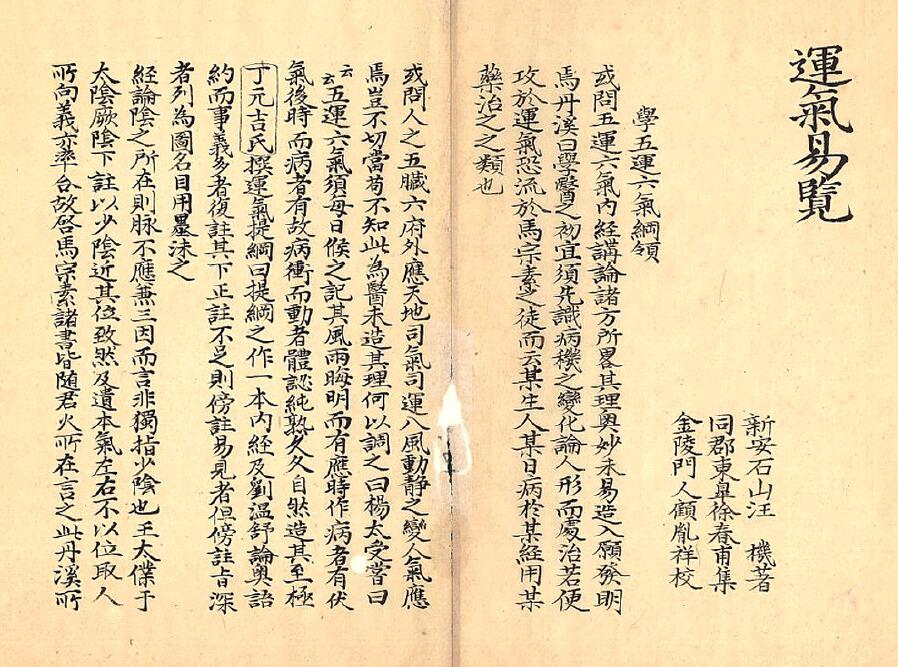 運氣易覽
新安石山汪　機著
同郡東臯徐春甫集
金陵門人顧胤祥校
學五運六氣綱領
或問五運六氣内經講論諸方所畧其理奥妙未易造入願發明
焉丹溪曰學醫之初宜須先識病機之變化論人形而處治若便
攻於運氣恐流於馬宗素之徒而云某生人某日病於某經用某
藥治之之類也
或問人之五臟六府外應天地司氣司運八風動静之變人氣應
焉豈不切當苟不知此為醫未造其理何以調之曰楊太受嘗曰
云云五運六氣須每日候之記其風雨晦明而有應時作病者有伏
氣後時而病者有故病衝而動者體認純熟久久自然造其至極
丁元吉氏撰運氣提綱曰提綱之作一本内經及劉温舒論奥語
約而事義多者復註其下正註不足則傍註易見者但傍註言深
者列為圖名目用墨沬之
經論陰之所在則脉不應兼三因而言非獨指少陰也王太僕于
太陰厥陰下註以少陰近其位致然及遺本氣左右不以位取人
所向義亦率合故啓馬宗素諸書皆随君火所在言之此丹溪所